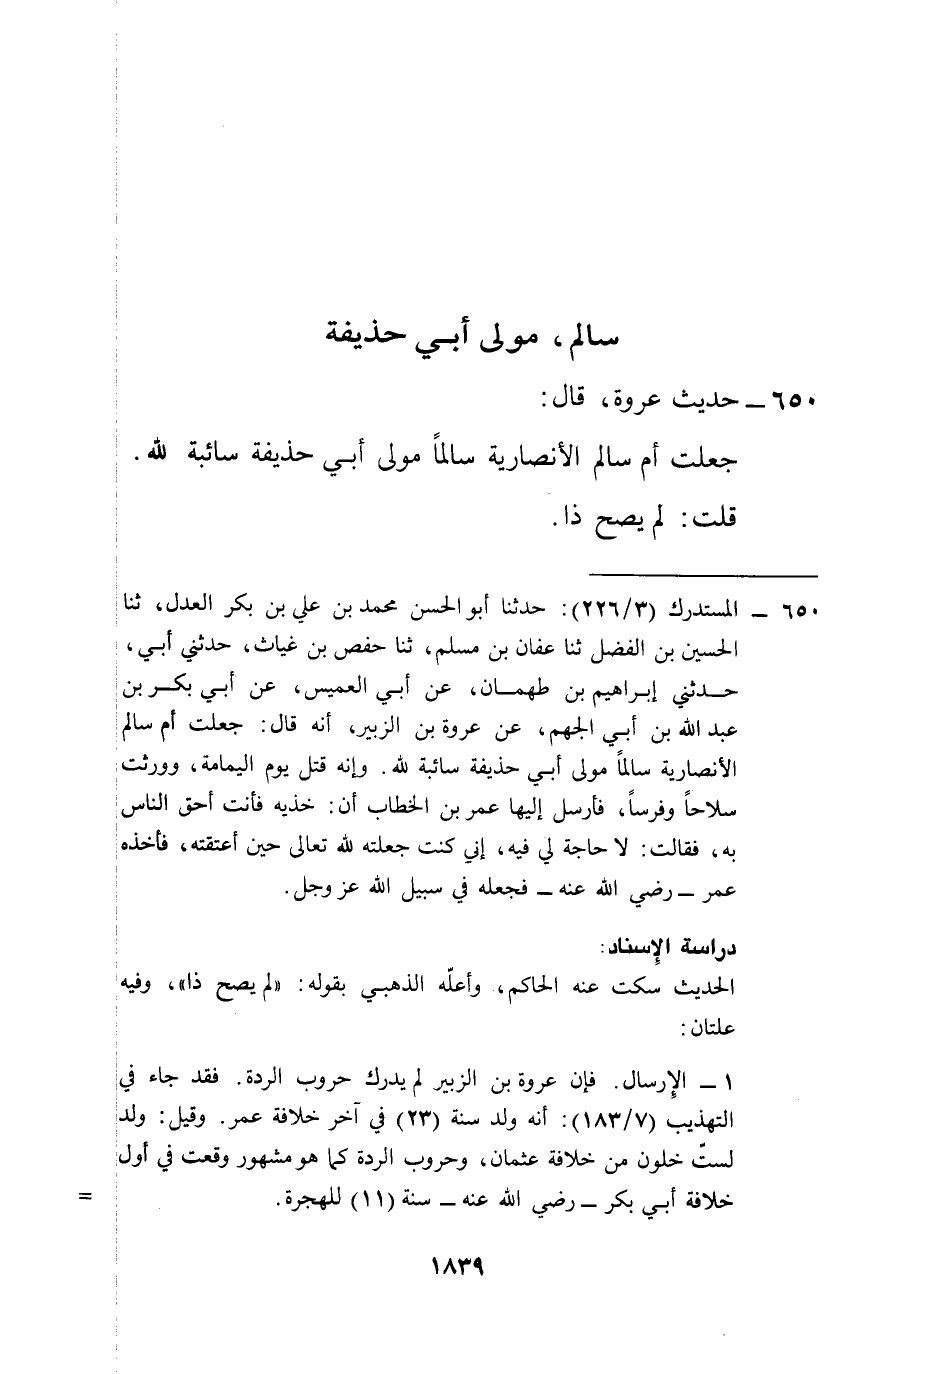 سالم، مولى أبي حذيفة
٦٥٠ ــ حديث عروة، قال:
جعلت أم سالم الأنصارية سالماً مولى أبي حذيفة سائبة لله.
قلت: لم يصح ذا.
٦٥٠ ــ المستدرك (٢٢٦/٣): حدثنا أبو الحسن محمد بن علي بن بكر العدل، ثنا
الحسين بن الفضل ثنا عفان بن مسلم، ثنا حفص بن غياث، حدثني أبي،
حدثني إبراهيم بن طهمان، عن أبي العميس، عن أبي بكر بن
عبد الله بن أبي الجهم، عن عروة بن الزبير، أنه قال: جعلت أم سالم
الأنصارية سالماً مولى أبي حذيفة سائبة لله. وإنه قتل يوم اليمامة، وورثت
سلاحاً وفرساً، فأرسل إليها عمر بن الخطاب أن: خذيه فأنت أحق الناس
به، فقالت: لا حاجة لي فيه، إني كنت جعلته لله تعالى حين أعتقته، فأخذه
عمر ــ رضي الله عنه ــ فجعله في سبيل الله عز وجل.
دراسة الإسناد:
الحديث سكت عنه الحاكم، وأعلّه الذهبي بقوله: «لم يصح ذا»، وفيه
علتان:
١ ــ الإرسال. فإن عروة بن الزبير لم يدرك حروب الردة. فقد جاء في
التهذيب (١٨٣/٧): أنه ولد سنة (٢٣) في آخر خلافة عمر. وقيل: ولد
لستّ خلون من خلافة عثمان، وحروب الردة كما هو مشهور وقعت في أول
خلافة أبي بكر ــ رضي الله عنه ــ سنة (١١) للهجرة. =
١٨٣٩